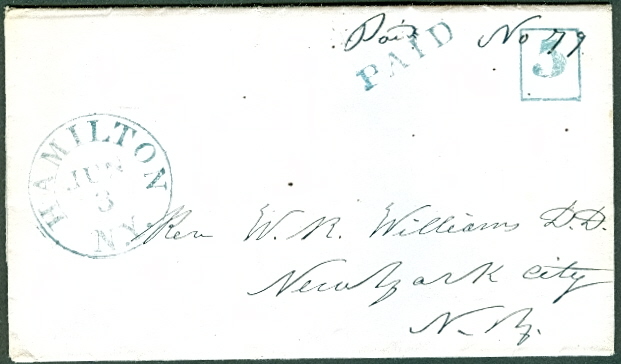 Paid No 79
PAID
5
HAMILTON
JUN
3
N.Y.
Rev W. R. Williams D.D.
New York City
N.Y.